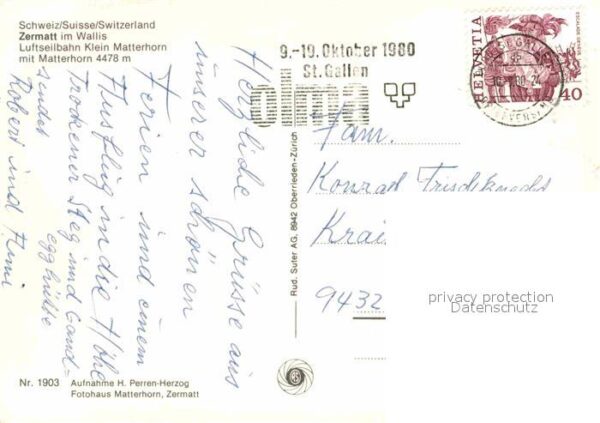 Schweiz/Suisse/Switzerland
Zermatt im Wallis
Luftseilbahn Klein Matterhorn
mit Matterhorn 4478 m
9.-19. Oktober 1980
St. Gallen
olma
HELVETIA
ESCALADE GENÈVE
40
Herzliche Grüsse aus
unserer schönen
Ferien und einem
Ausflug in die Höhe
Trockener Steg und Gand-
egghütte
sendet
Robert und
Fam.
Konrad Frischknecht
Krai
9432
privacy protection
Datenschutz
Rud. Suter AG, 8942 Oberrieden-Zürich
Nr. 1903 Aufnahme H. Perren-Herzog
Fotohaus Matterhorn, Zermatt